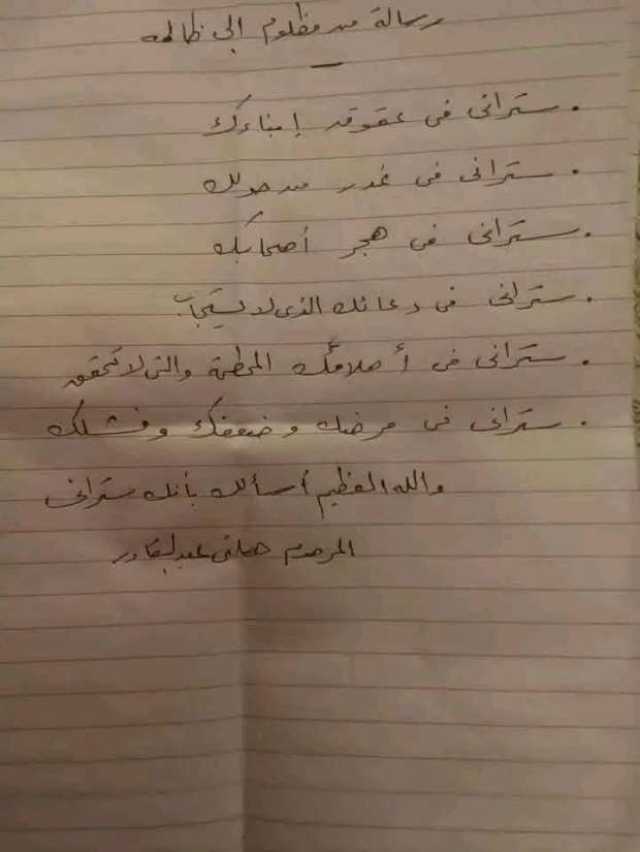 رسالة من مظلوم إلى ظالمه
. ستراني في عقوق إبناءك
. ستراني في غدر من حولك
. ستراني في هجر أصحابك
. ستراني في دعائك الذي لا يستجاب
. ستراني في أحلامك المحطمة والتي لا تحقق
. ستراني في مرضك وضعفك وفشلك
والله العظيم أسألك بأنك ستراني
المرحوم عبدالقادر